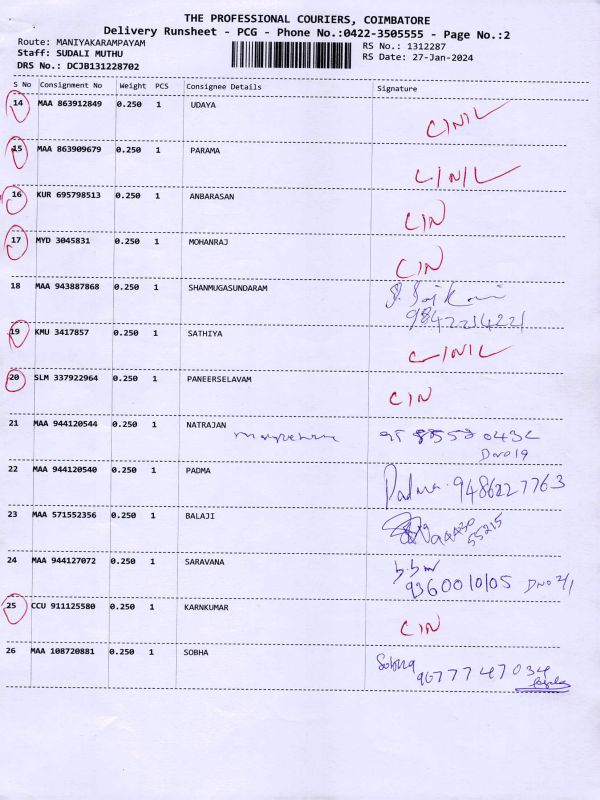 THE PROFESSIONAL COURIERS, COIMBATORE
Delivery Runsheet - PCG - Phone No.:0422-3505555 - Page No.:2
Route: MANIYAKARAMPAYAM
RS No.: 1312287
Staff: SUDALI MUTHU
RS Date: 27-Jan-2024
DRS No.: DCJB131228702
S No Consignment No Weight PCS Consignee Details Signature
14 MAA 863912849 0.250 1 UDAYA
C/N/L
15 MAA 863909679 0.250 1 PARAMA
C/N/L
16 KUR 695798513 0.250 1 ANBARASAN
C/N
17 MYD 3045831 0.250 1 MOHANRAJ
C/N
18 MAA 943887868 0.250 1 SHANMUGASUNDARAM
9842214221
19 KMU 3417857 0.250 1 SATHIYA
C/N/L
20 SLM 337922964 0.250 1 PANEERSELAVAM
C/N
21 MAA 944120544 0.250 1 NATRAJAN
DNo19
22 MAA 944120540 0.250 1 PADMA
Padma. 9486227763
23 MAA 571552356 0.250 1 BALAJI
55215
24 MAA 944127072 0.250 1 SARAVANA
9360010105 DNo 2/1
25 CCU 911125580 0.250 1 KARNKUMAR
C/N
26 MAA 108720881 0.250 1 SOBHA
Sobha 9677747034